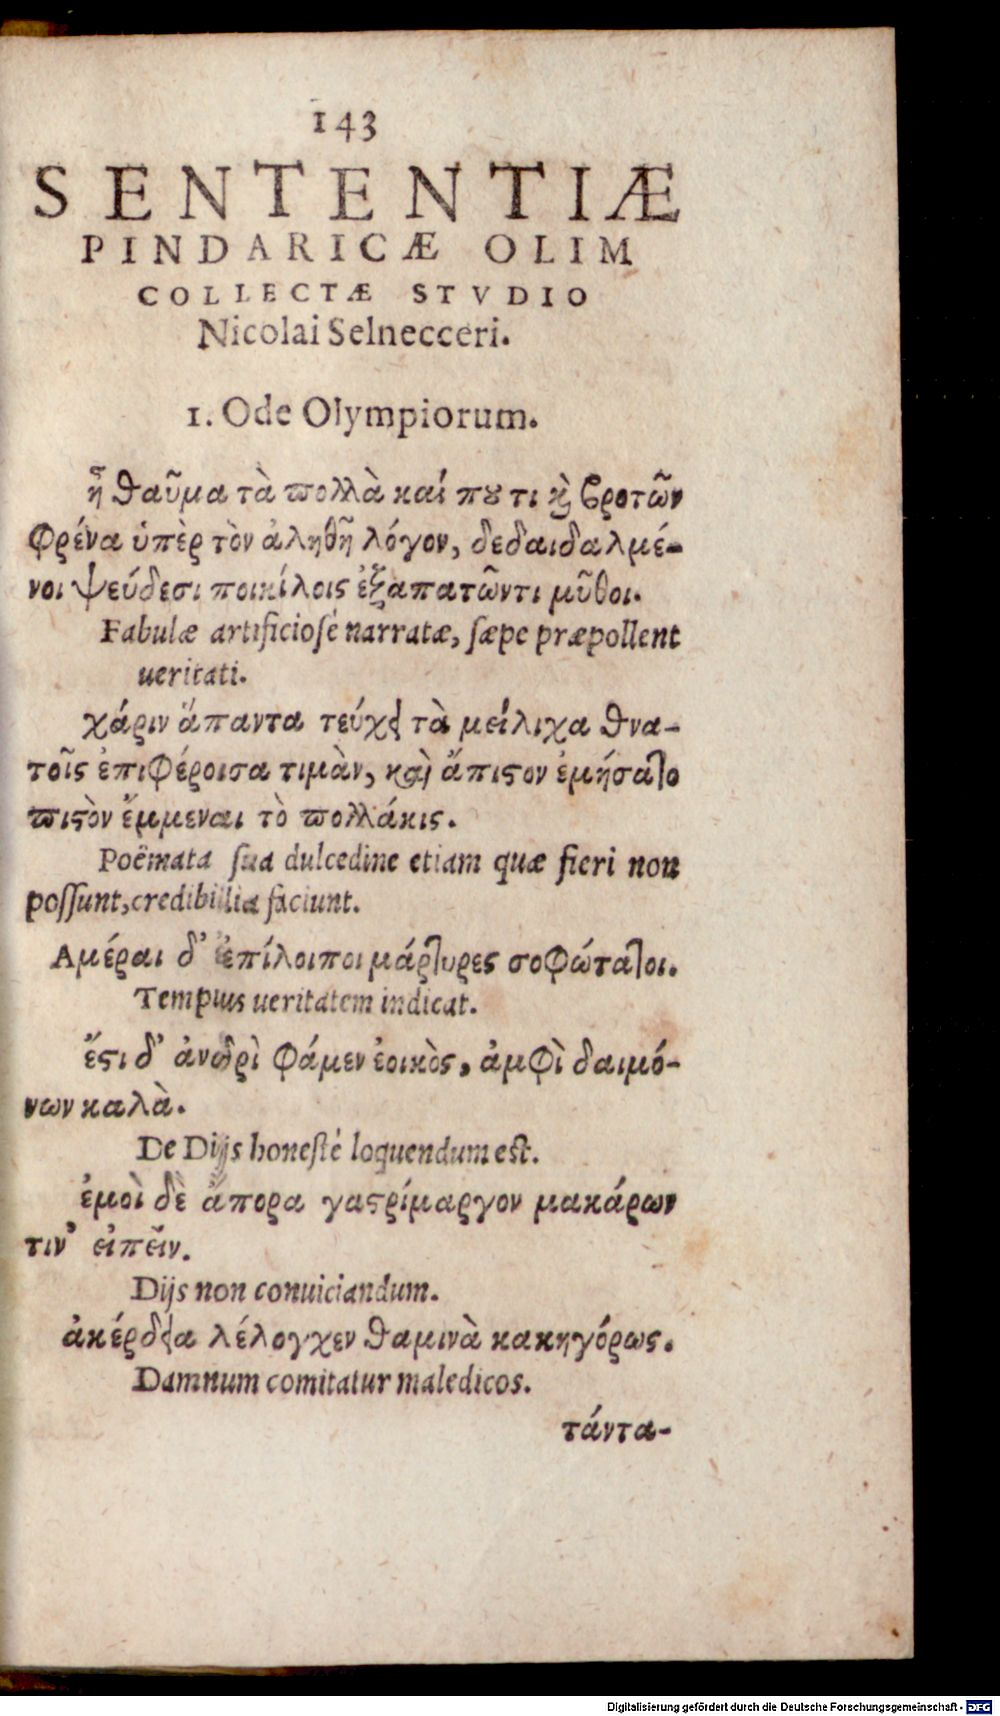 143
SENTENTIÆ
PINDARICÆ OLIM
COLLECTÆ STVDIO
Nicolai Selnecceri.
1. Ode Olympiorum.
ἦ θαῦμα τὰ πολλὰ καί πȣ τι κὶ βροτῶν
φρένα ὑπὲρ τὸν ἀληθῆ λόγον, δεδαιδαλμέ-
νοι ψεύδεσι ποικίλοις ἐξαπατῶντι μῦθοι.
Fabulæ artificiosé narratæ, sæpe præpollent
ueritati.
χάριν ἅπαντα τεύχει τὰ μείλιχα θνα-
τοῖς ἐπιφέροισα τιμὰν, καὶ ἄπιστον ἐμήσατο
πιστὸν ἔμμεναι τὸ πολλάκις.
Poëmata sua dulcedine etiam quæ fieri non
possunt, credibilia faciunt.
Αμέραι δ' ἐπίλοιποι μάρτυρες σοφώτατοι.
Tempus ueritatem indicat.
ἔστι δ' ἀνδρὶ φάμεν ἐοικὸς, ἀμφὶ δαιμό-
νων καλὰ.
De Dijs honesté loquendum est.
ἐμοὶ δὲ ἄπορα γαστρίμαργον μακάρων
τιν' εἰπεῖν.
Dijs non conuiciandum.
ἀκέρδεια λέλογχεν θαμινὰ κακηγόρως.
Damnum comitatur maledicos.
τάντα-
Digitalisierung gefördert durch die Deutsche Forschungsgemeinschaft - DFG